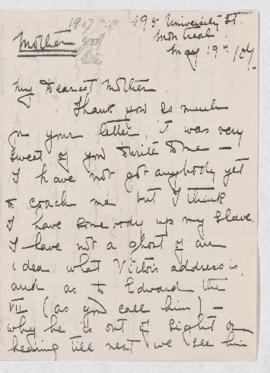 1907
295 University St.
Montreal
Mother
May 19th /07
My Dearest Mother
Thank you so much
for your letter, it was very
sweet of you to write to me —
I have not got anybody yet
to coach me but I think
I have somebody up my sleave.
I have not a ghost of an
idea what Victor's address is,
and as to Edward the
VII (as you call him) —
why he is out of sight or
hearing till next we see him